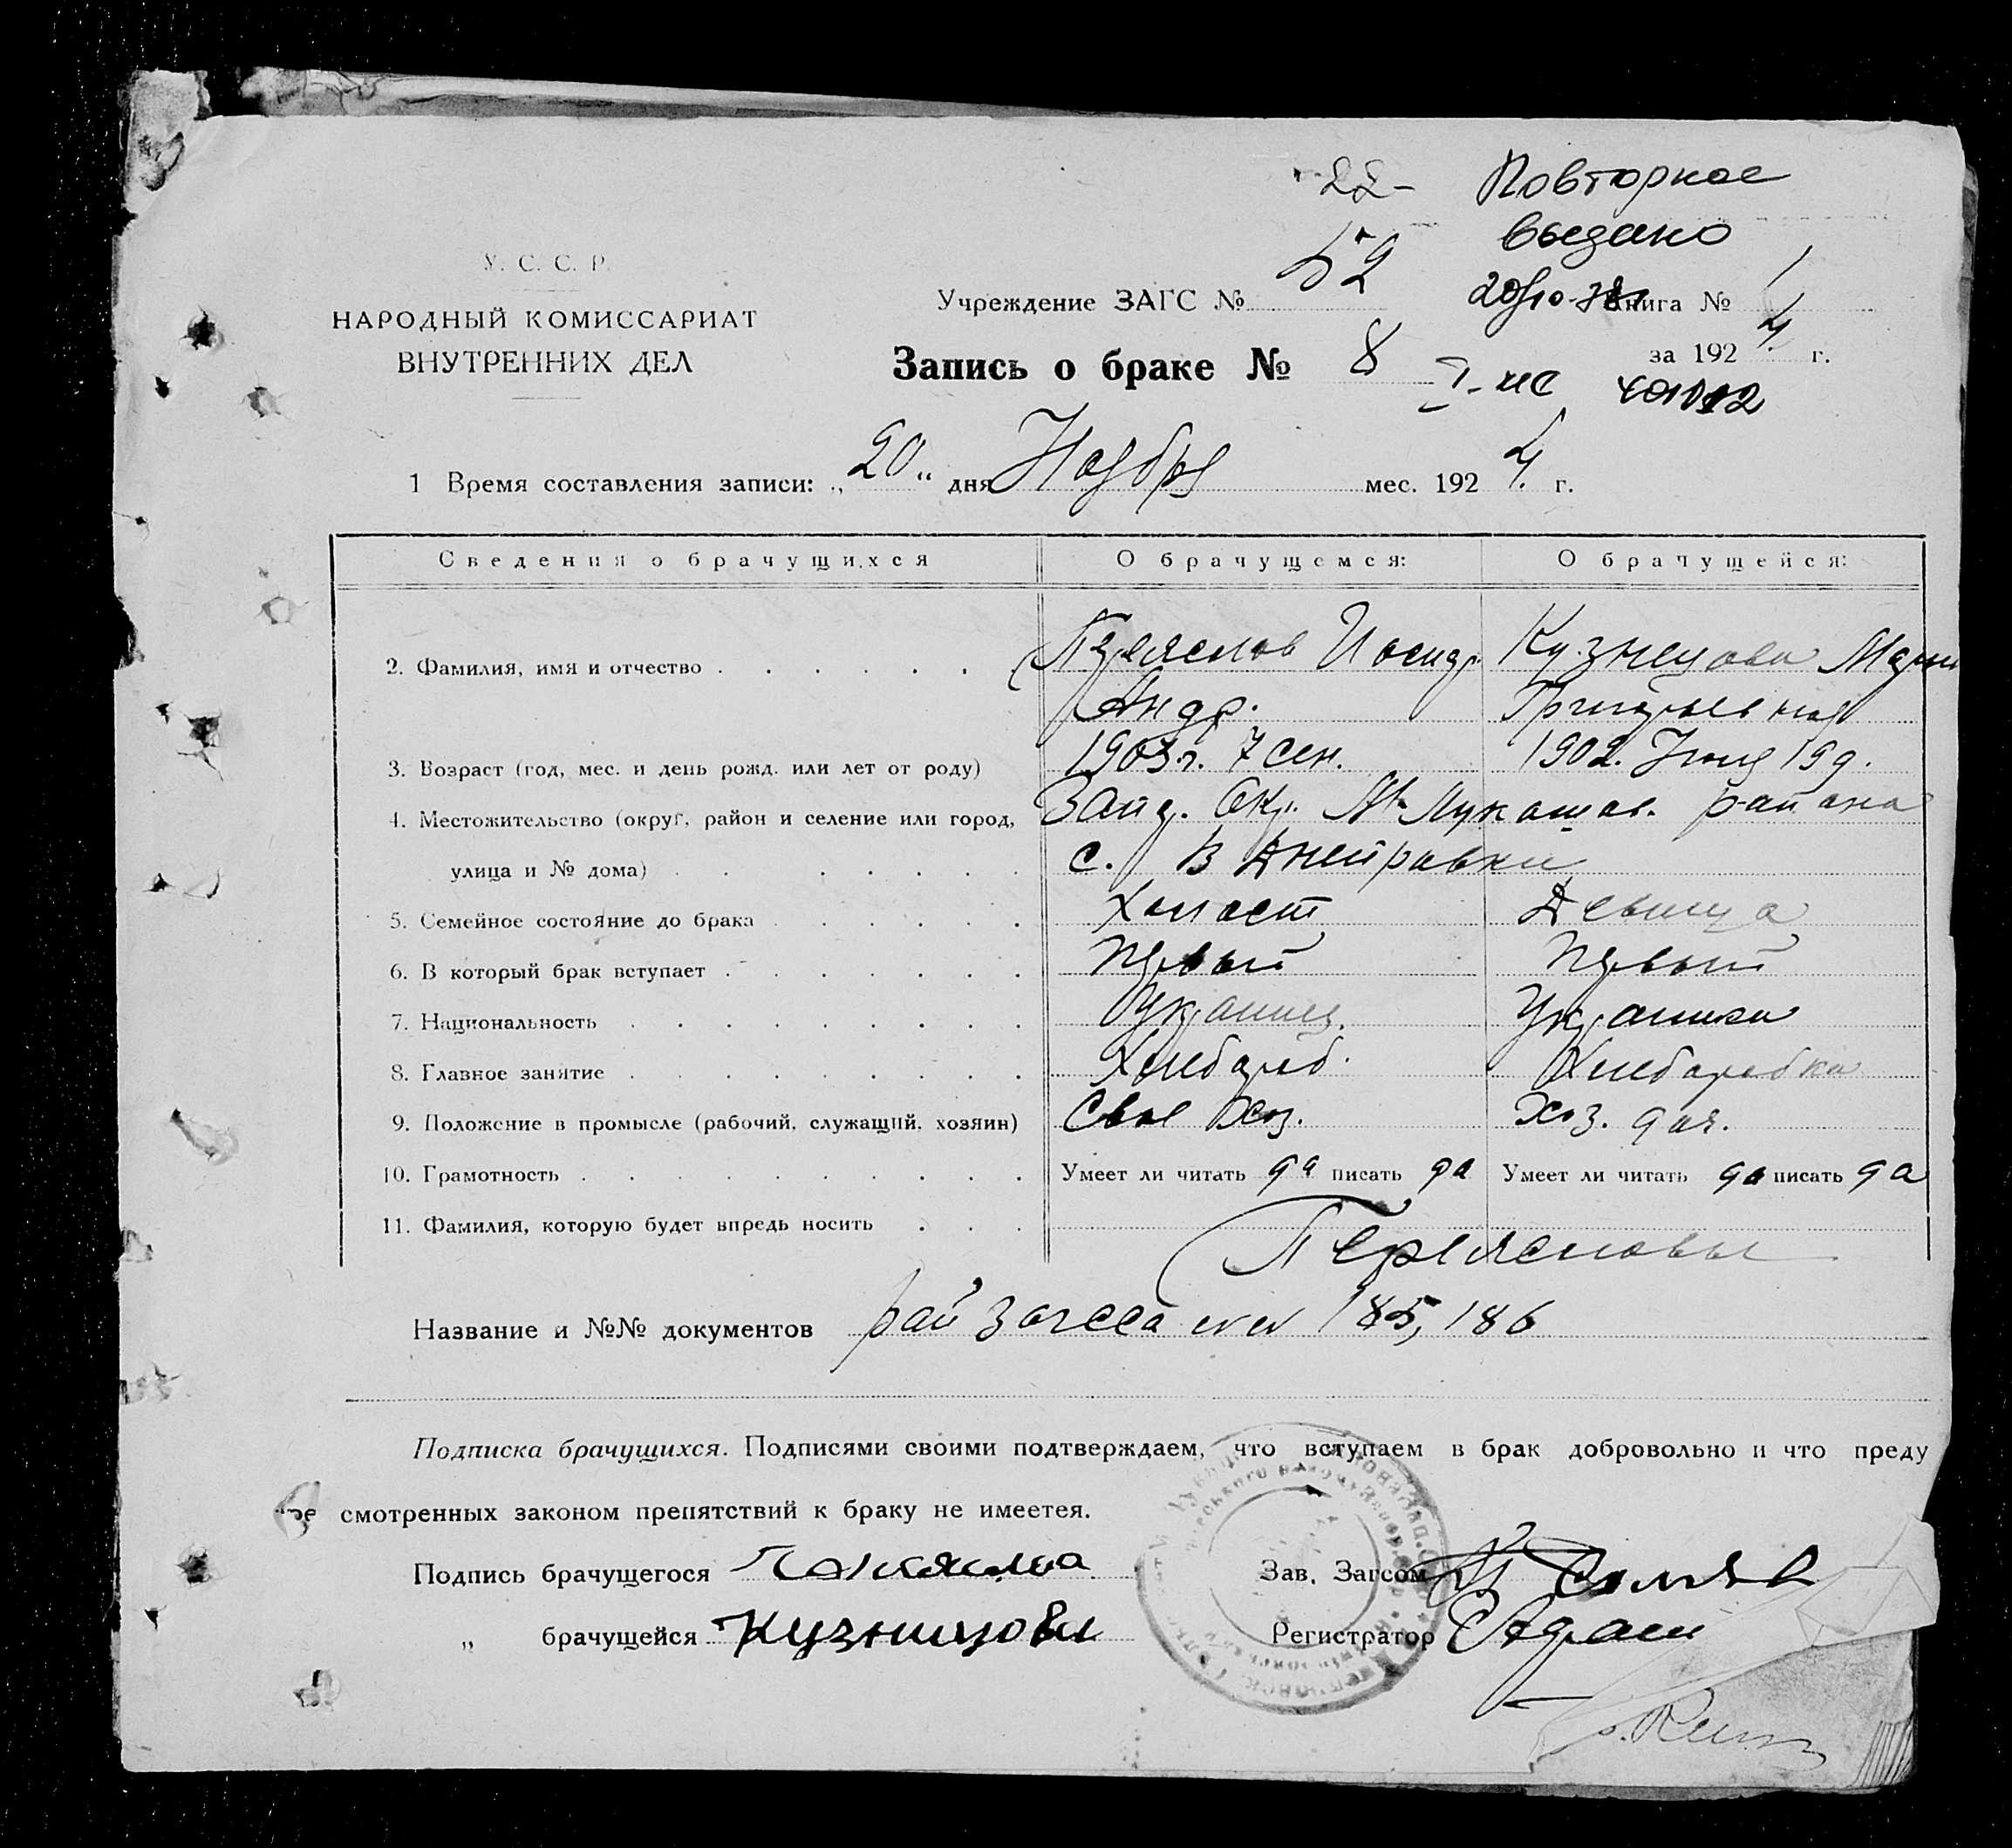 -22- Повторное
выдано
У. С. С. Р.
Учреждение ЗАГС № 52 Книга № 1
НАРОДНЫЙ КОМИССАРИАТ
ВНУТРЕННИХ ДЕЛ
за 192 4 г.
Запись о браке № 8
1 Время составления записи: „ 20 “ дня Ноября мес. 192 4 г.
Сведения о брачущихся О брачущемся: О брачущейся:
2. Фамилия, имя и отчество Кузнецова Мария
Андр. Григорьевная
3. Возраст (год, мес. и день рожд. или лет от роду) 1903 г. 7 сен. 1902. Июня 19 д.
4. Местожительство (округ, район и селение или город, Запор. Окр. М-Лукашов. района
улица и № дома) с. В Днепровки
5. Семейное состояние до брака Холост Девица
6. В который брак вступает Первый Первый
7. Национальность Украинец. Украинка
8. Главное занятие Хлебороб. Хлеборобка
9. Положение в промысле (рабочий, служащий, хозяин) Свое Хоз. Хоз. доч.
10. Грамотность Умеет ли читать да писать да Умеет ли читать да писать да
11. Фамилия, которую будет впредь носить
Переясловы
Название и №№ документов рай загса 185, 186
Подписка брачущихся. Подписями своими подтверждаем, что вступаем в брак добровольно и что преду
смотренных законом препятствий к браку не имеется.
Подпись брачущегося Зав. Загсом
„ брачущейся Кузницова Регистратор